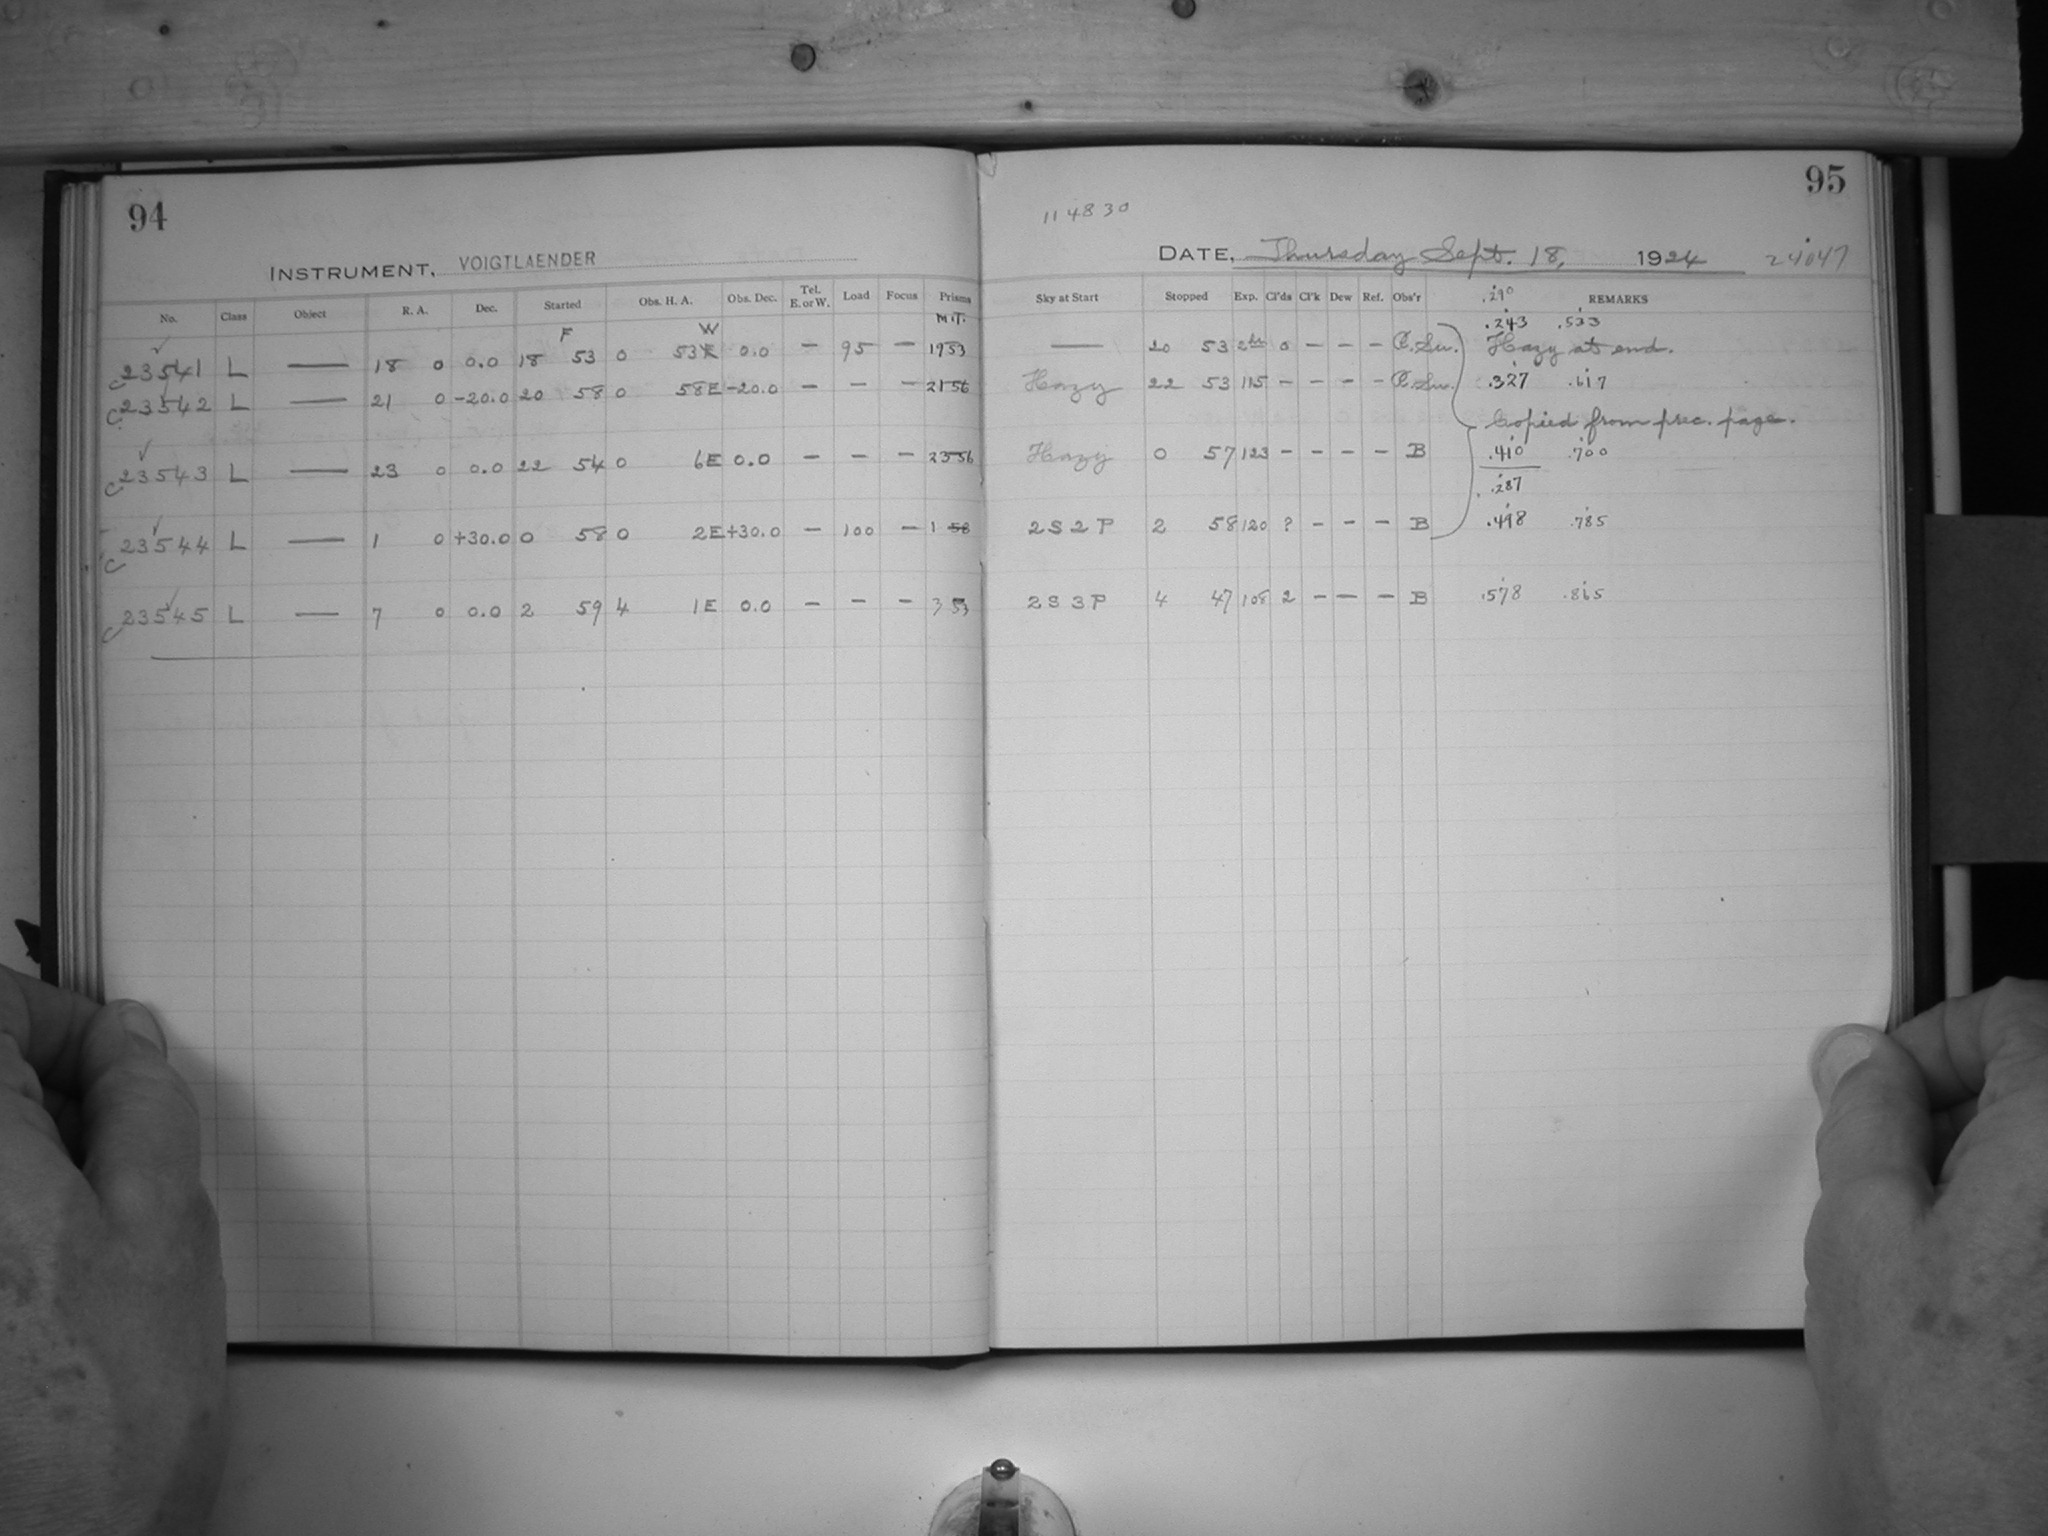 94
INSTRUMENT, VOIGTLAENDER
No. Class Object R. A. Dec. Started Obs. H. A. Obs. Dec. Tel. E. or W. Load Focus Prisms
F W M.T.
C23541 L — 18 0 0.0 18 53 0 53 W 0.0 — 95 — 1953
C23542 L — 21 0 -20.0 20 58 0 58E -20.0 — — — 2156
C23543 L — 23 0 0.0 22 54 0 6E 0.0 — — — 2356
C23544 L — 1 0 +30.0 0 58 0 2E +30.0 — 100 — 1 58
C23545 L — 7 0 0.0 2 59 4 1E 0.0 — — — 3 53
95
114830
DATE, Thursday Sept. 18, 1924 24047
Sky at Start Stopped Exp. Cl'ds Cl'k Dew Ref. Obs'r REMARKS
.290
.243 .533
— 20 53 2hr 0 — — — C.Sw. Hazy at end.
Hazy 22 53 115 — — — — C.Sw. .327 .617
Copied from prec. page.
Hazy 0 57 123 — — — — B .410 .700
.287
2S2P 2 58 120 ? — — — B .498 .785
2S3P 4 47 108 2 — — — B .578 .865